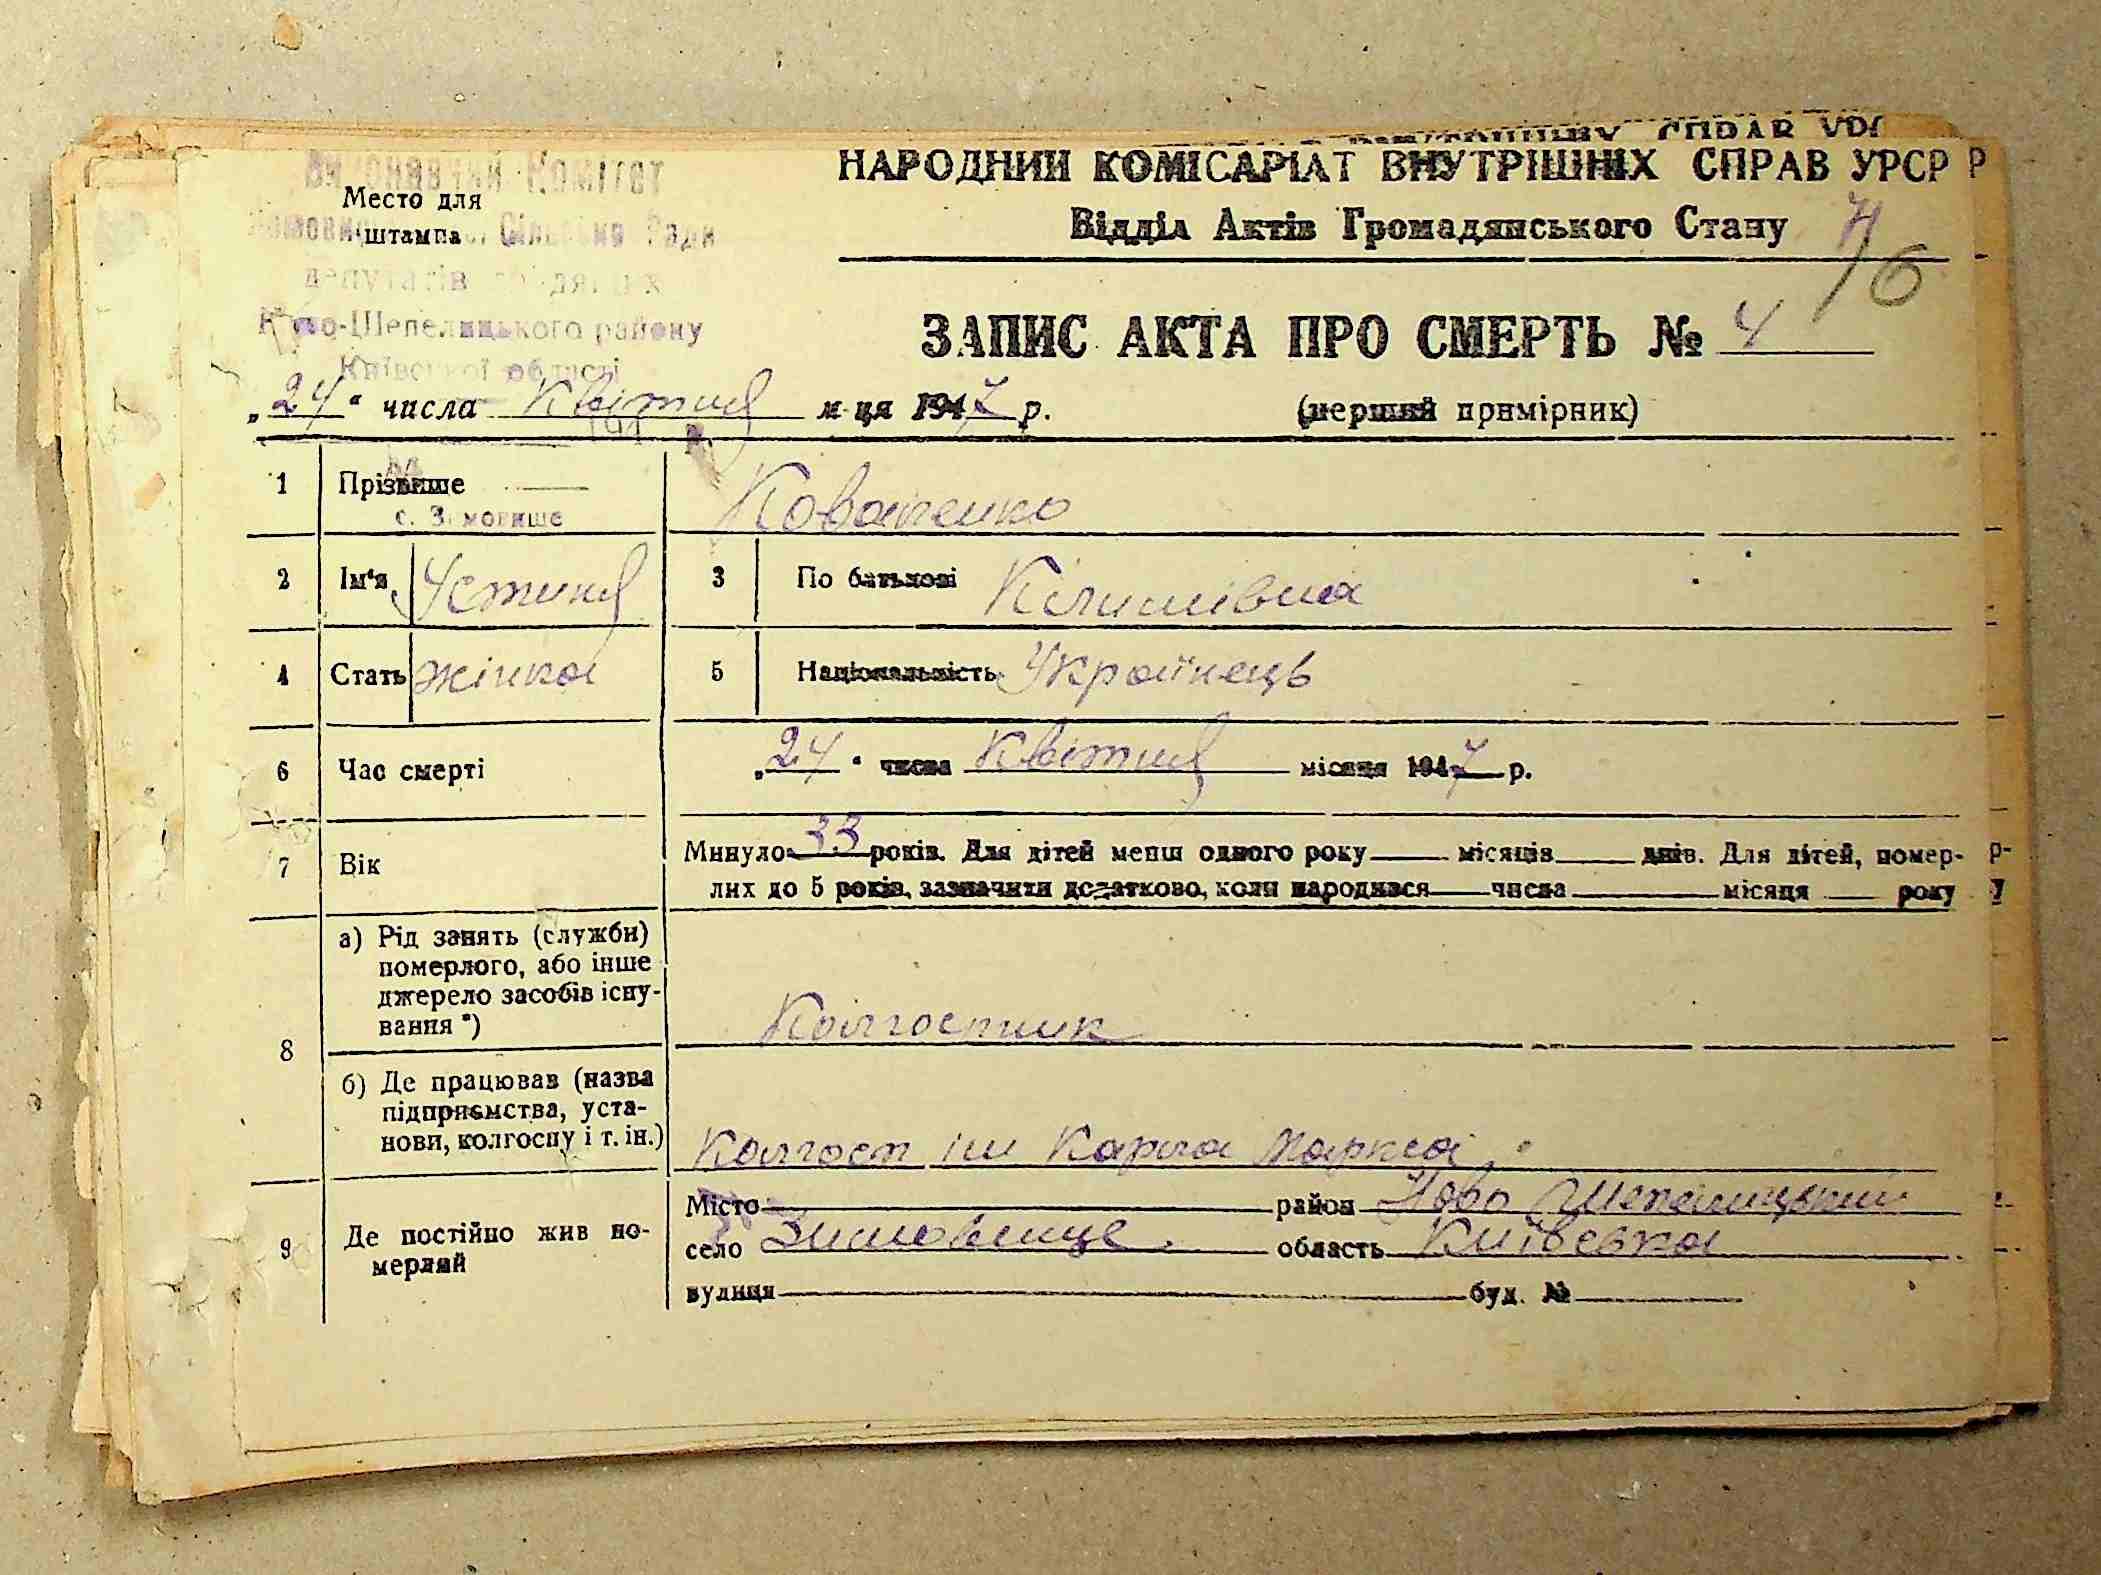 СПРАВ УРС
НАРОДНИЙ КОМІСАРІАТ ВНУТРІШНІХ СПРАВ УРСР Р
Место для
штампа
Сільська Ради
депутатів
Ново-Шепелицького району
Київської області
Відділ Актів Громадянського Стану
6
ЗАПИС АКТА ПРО СМЕРТЬ № 4
„24“ числа Квітня м-ця 1947 р. (перший примірник)
1 Прізвище Коваленко
2 Ім'я Устиня 3 По батькові Кілимівна
4 Стать жінка 5 Національність Українець
6 Час смерті „24“ числа Квітня місяця 1947 р.
7 Вік Минуло 33 років. Для дітей менш одного року місяців днів. Для дітей, помер-
лих до 5 років, зазначити додатково, коли народився числа місяця року
8 а) Рід занять (служби)
померлого, або інше
джерело засобів існу-
вання *) Колгостник
б) Де працював (назва
підприємства, уста-
нови, колгоспу і т. ін.) Колгост ім Карла Маркса
9 Де постійно жив по-
мерлий
Місто район Ново Шепелицький
село Зимовище область Київська
вулиця буд. №